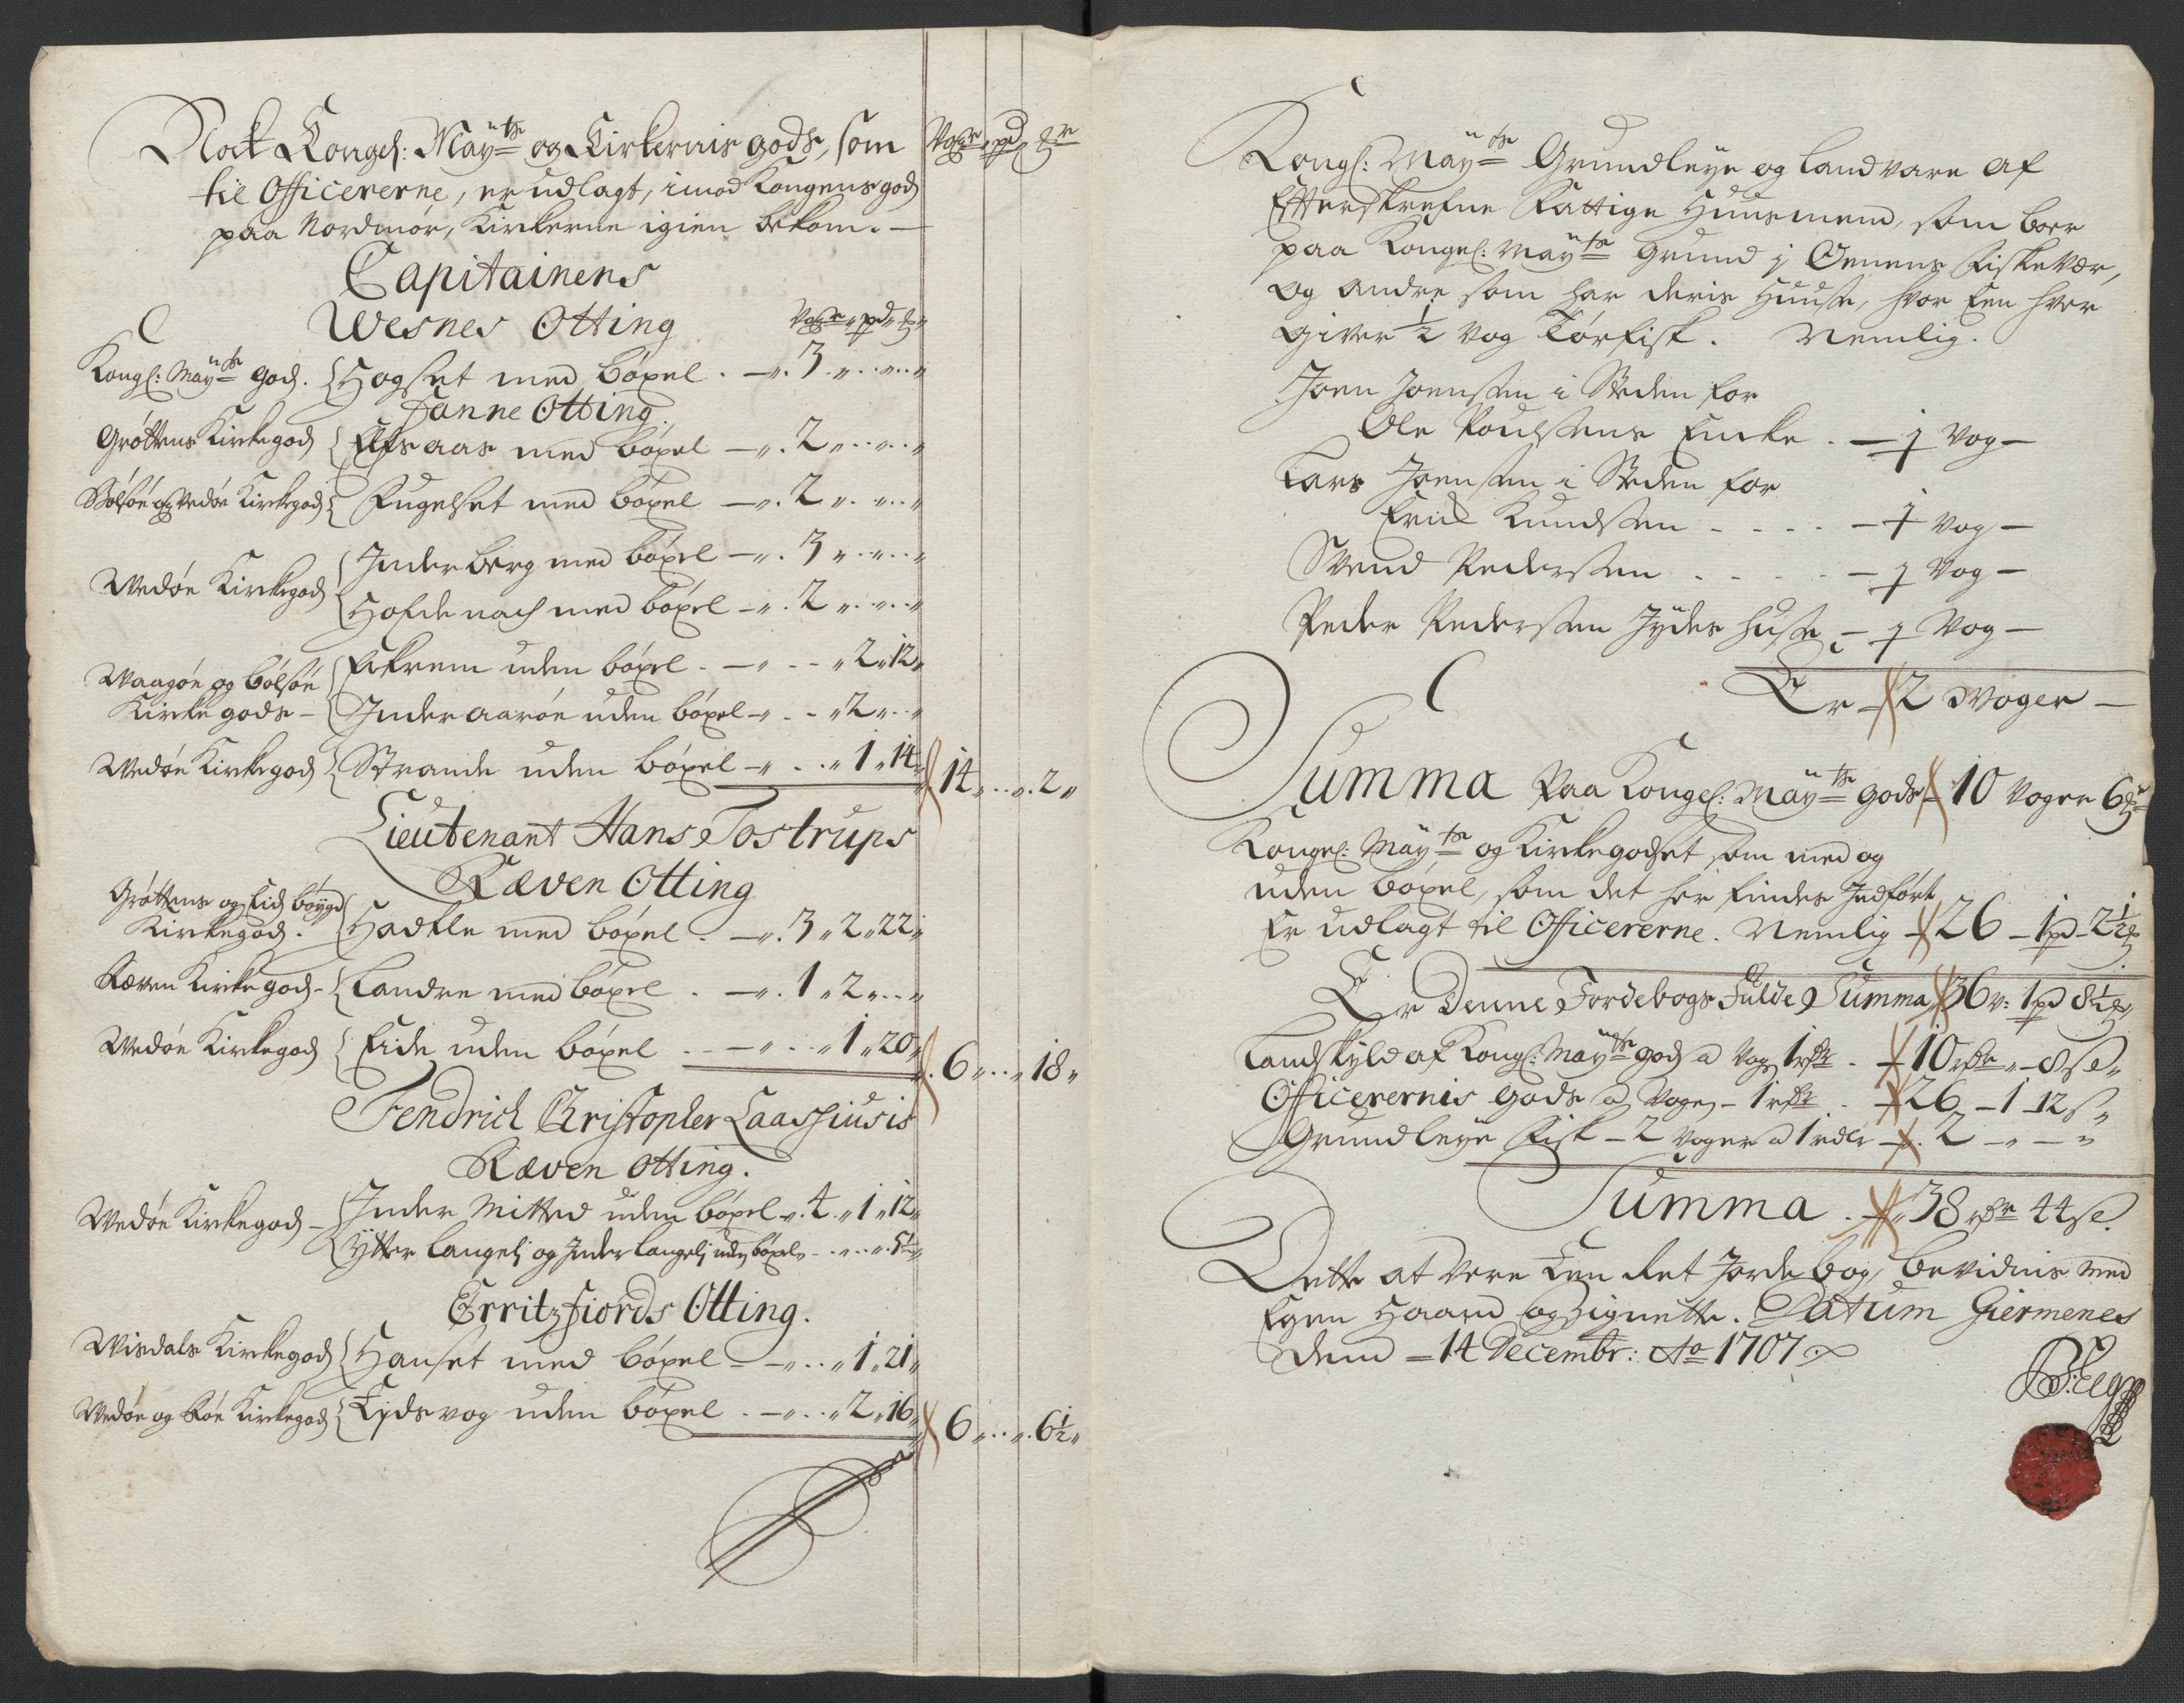 Nock Kongel: Mayts og Kirkernis gods, som Woger pd mr
til Officererne, er udlagt, imod Kongens gods
paa Nordmør, Kirkerne igien bekom. —
Capitainens
Wesnes Otting Woger " pd " m "
Kongl: Mayts gods. Hogset med böxel. — ". 3 " . . " . . "
Fanne Otting.
Gröttens Kirkegods Elfsaas med böxel — ". 2 " . . " . . "
Bolsön og Vedön Kirkegods Fugelset med böxel — ". 2 " . . " . . "
Wedön Kirkegods Inderberg med böxel — ". 3 " . . " . . "
Hofdenach med böxel — ". 2 " . . " . . "
Waagön og bolsön Ekrem uden böxel. — " . - - " 2 " 12 "
Kirke gods - Inder aarön uden böxel — " . - " 2 " . . "
Wedön Kirkegods Strande uden böxel — " . . . " 1 " 14 " 14 " . . " . 2 "
Lieutenant Hans Tostrups
Ræven Otting
Gröttens og Eids böygd
Kirkegods. Hadlle med böxel. — ". 3 " 2 " 22 "
Ræven Kirkegods - Landre med böxel . — ". 1 " 2 " . . "
Wedön Kirkegods Eide uden böxel . . — " . . " 1 " 20 " 6 " . . " 18 "
Fendrich Christopher Caassiusis
Ræven Otting.
Wedön Kirkegods - Inder Mitted uden böxel ". 4 " 1 " 12 "
Ytter Langeli og Inder Langeli uden böxel " . . " . . " . 5½ "
Erritzfiords Otting.
Wisdals Kirkegods Hanset med böxel - — " . . " 1 " 21 "
Wedön og Röe Kirkegods Eydsvog uden böxel . — " . . " 2 " 16 " 6 " . . " . 6½ "
Kongl: Mayts Grundleye og landvare af
Efterskrefne Fattige Huusmend, som boer
paa Kongel: Mayts grund i Ørnens Fiskevær,
og andre som har deris Huuse, hvor Een hver
giver ½ vog Törfisk. Nemlig.
Joen Joensen i Steden for
Ole Poulsens Encke . — ½ Vog —
Lars Joensen i Steden for
Erick Knudsen - - - - — ½ vog —
Svend Pedersen . - - . - — ½ Vog —
Peder Pedersen Jydes Huse — ½ Vog —
Er — 2 Woger —
Summa Paa Kongel: Mayts gods — 10 Voger 6 m
Kongel: Mayts og Kirkegodset, som med og
uden böxel, som det her findes Indfört
Er udlagt til Officererne. Nemlig — 26 — 1 pd — 2½ m
Er Denne Jordebogs Fulde Summa 36 v: 1 pd 8½ m
Landskyld af Kongl: Mayts gods a Vog 1 rdr . — 10 rdr " — 8 s "
Officerernis gods a Vogen — 1 rdr . — 26 — 1 — 12 s "
Grundleye Fisk — 2 Voger a 1 rdlr — . 2 — " — "
Summa . — " 38 rdr 44 s.
Dette at være Een Ret Jordebog, bevidnis med
Egen Haand og Signette. Datum Giermenes
dend — 14 Decembr: Ao 1707